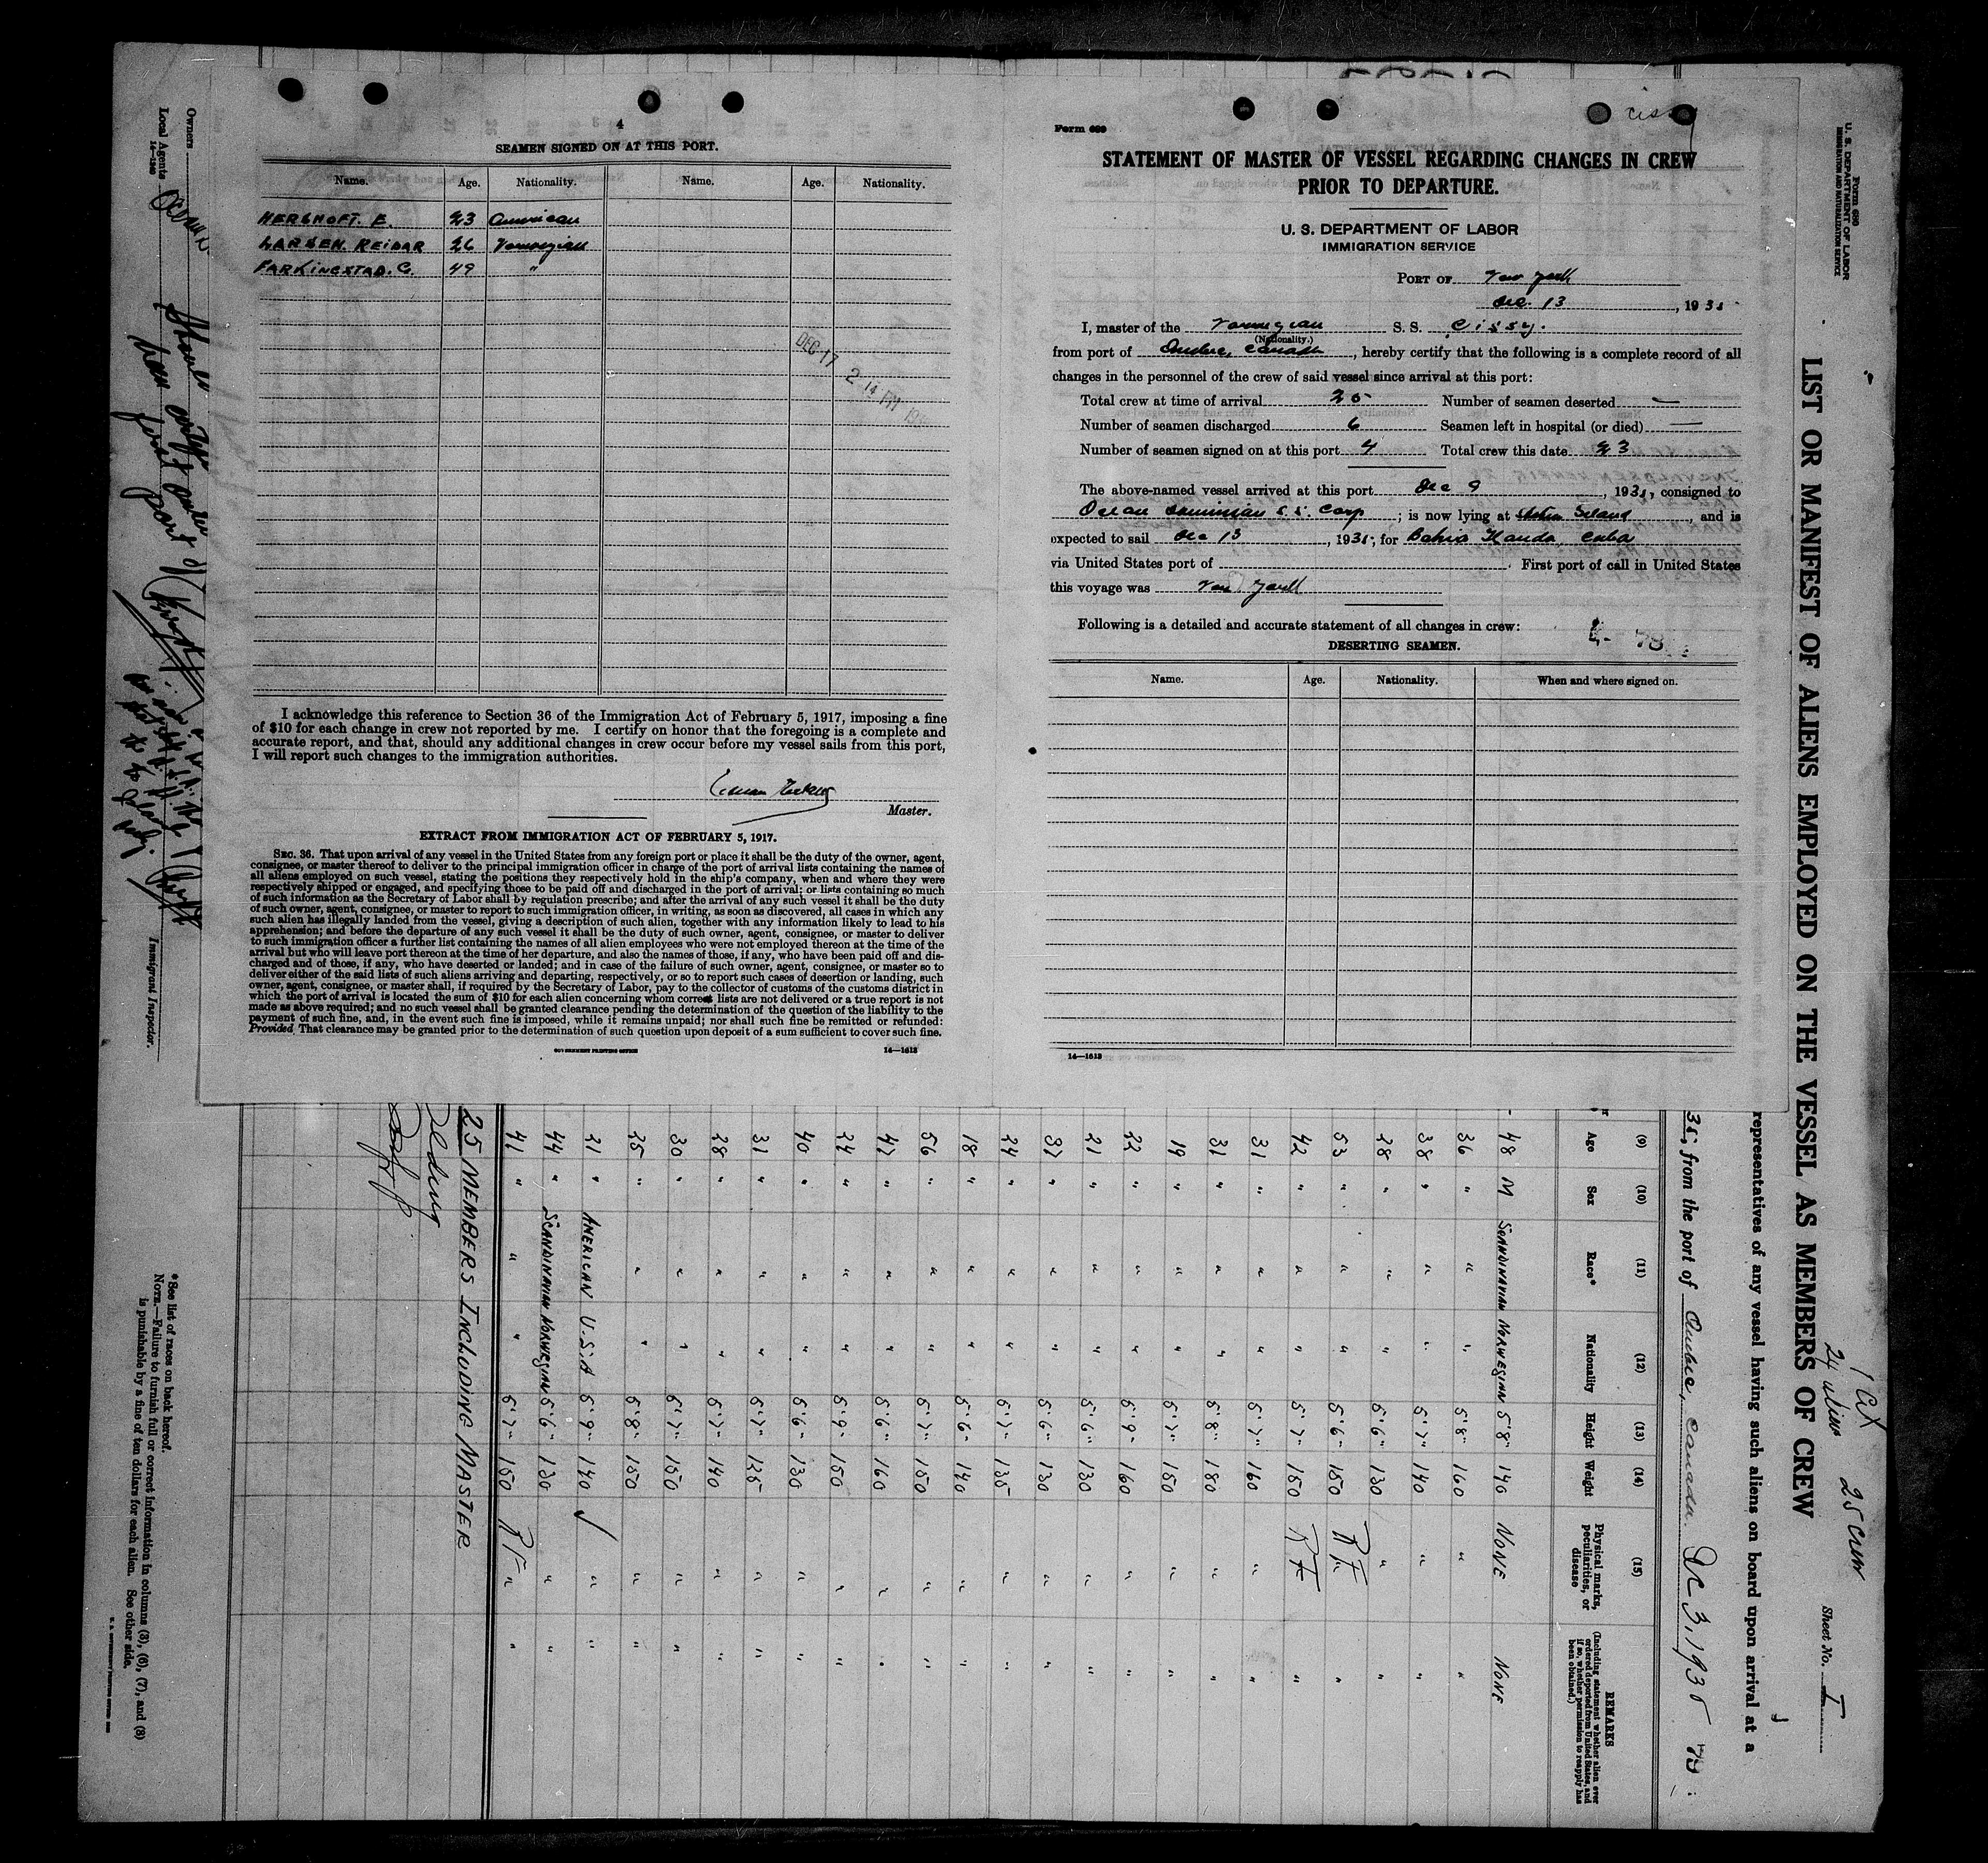 4
SEAMEN SIGNED ON AT THIS PORT.
Name. Age. Nationality. Name. Age. Nationality.
HERSHOFT. E. 23 American
LARSEN. REIDAR 26 Norwegian
FARKINGSTAD. G. 49 "
DEC 17 2 14 PM
I acknowledge this reference to Section 36 of the Immigration Act of February 5, 1917, imposing a fine
of $10 for each change in crew not reported by me. I certify on honor that the foregoing is a complete and
accurate report, and that, should any additional changes in crew occur before my vessel sails from this port,
I will report such changes to the immigration authorities.
Master.
EXTRACT FROM IMMIGRATION ACT OF FEBRUARY 5, 1917.
SEC. 36. That upon arrival of any vessel in the United States from any foreign port or place it shall be the duty of the owner, agent,
consignee, or master thereof to deliver to the principal immigration officer in charge of the port of arrival lists containing the names of
all aliens employed on such vessel, stating the positions they respectively hold in the ship's company, when and where they were
respectively shipped or engaged, and specifying those to be paid off and discharged in the port of arrival; or lists containing so much
of such information as the Secretary of Labor shall by regulation prescribe; and after the arrival of any such vessel it shall be the duty
of such owner, agent, consignee, or master to report to such immigration officer, in writing, as soon as discovered, all cases in which any
such alien has illegally landed from the vessel, giving a description of such alien, together with any information likely to lead to his
apprehension; and before the departure of any such vessel it shall be the duty of such owner, agent, consignee, or master to deliver
to such immigration officer a further list containing the names of all alien employees who were not employed thereon at the time of the
arrival but who will leave port thereon at the time of her departure, and also the names of those, if any, who have been paid off and dis-
charged and of those, if any, who have deserted or landed; and in case of the failure of such owner, agent, consignee, or master so to
deliver either of the said lists of such aliens arriving and departing, respectively, or so to report such cases of desertion or landing, such
owner, agent, consignee, or master shall, if required by the Secretary of Labor, pay to the collector of customs of the customs district in
which the port of arrival is located the sum of $10 for each alien concerning whom correct lists are not delivered or a true report is not
made as above required; and no such vessel shall be granted clearance pending the determination of the question of the liability to the
payment of such fine, and, in the event such fine is imposed, while it remains unpaid; nor shall such fine be remitted or refunded:
Provided, That clearance may be granted prior to the determination of such question upon deposit of a sum sufficient to cover such fine.
GOVERNMENT PRINTING OFFICE 14—1613
Cissy
Form 689
STATEMENT OF MASTER OF VESSEL REGARDING CHANGES IN CREW
PRIOR TO DEPARTURE.
U. S. DEPARTMENT OF LABOR
IMMIGRATION SERVICE
PORT OF New York
Dec. 13, 1935
I, master of the Norwegian S. S. Cissy.
(Nationality.)
from port of Quebec, Canada, hereby certify that the following is a complete record of all
changes in the personnel of the crew of said vessel since arrival at this port:
Total crew at time of arrival 25 Number of seamen deserted —
Number of seamen discharged 6 Seamen left in hospital (or died) —
Number of seamen signed on at this port 4 Total crew this date 23
The above-named vessel arrived at this port Dec 9, 1935, consigned to
Ocean Dominion S.S. Corp; is now lying at Staten Island, and is
expected to sail Dec 13, 1935, for Bahia Honda, Cuba
via United States port of . First port of call in United States
this voyage was New York
Following is a detailed and accurate statement of all changes in crew:
DESERTING SEAMEN.
Name. Age. Nationality. When and where signed on.
14—1613
Form 689
U. S. DEPARTMENT OF LABOR
IMMIGRATION AND NATURALIZATION SERVICE
LIST OR MANIFEST OF ALIENS EMPLOYED ON THE VESSEL AS MEMBERS OF CREW
25 crew
Sheet No. I
representatives of any vessel having such aliens on board upon arrival at a
35, from the port of Quebec, Canada. Dec 3, 1935
(9) (10) (11) (12) (13) (14) (15)
Age Sex Race* Nationality Height Weight Physical marks, peculiarities, or disease REMARKS
(Including statement whether alien ever ordered deported from United States, and if so, whether permission to reapply has been obtained)
48 M SCANDINAVIAN NORWEGIAN 5'8" 140 NONE NONE
36 " " " 5'8" 160 " "
38 " " " 5'7" 140 " "
28 " " " 5'6" 130 " "
53 " " " 5'6" 150 RF " "
42 " " " 5'7" 150 RF "
31 " " " 5'7" 160 " "
31 " " " 5'8" 180 " "
19 " " " 5'7" 150 " "
22 " " " 5'9" 160 " "
21 " " " 5'6" 130 " "
37 " " " 5'6" 130 " "
24 " " " 5'7" 135 " "
18 " " " 5'6" 140 " "
56 " " " 5'7" 150 " "
47 " " " 5'6" 160 " "
24 " " " 5'9" 150 " "
40 " " " 5'6" 130 " "
31 " " " 5'7" 125 " "
28 " " " 5'7" 140 " "
30 " " " 5'7" 150 " "
25 " " " 5'8" 150 " "
21 " AMERICAN U.S.A 5'9" 140 " "
44 " SCANDINAVIAN NORWEGIAN 5'6" 130 " "
41 " " " 5'7" 150 RF " "
25 MEMBERS INCLUDING MASTER
Owners
Local Agents Ocean
14—1240
Immigrant Inspector.
*See list of races on back hereof.
NOTE.—Failure to furnish full or correct information in columns (3), (6), (7), and (8)
is punishable by a fine of ten dollars for each alien. See other side.